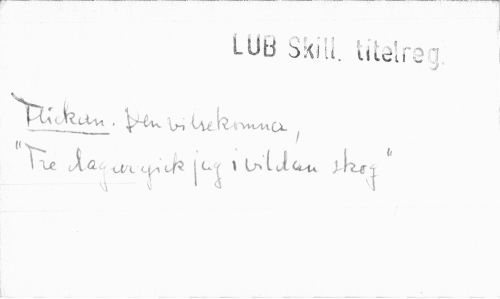 LUB Skill. titelreg.
Flickan. Den vilsekomna,
"Tre dagar gick jag i vildan skog"